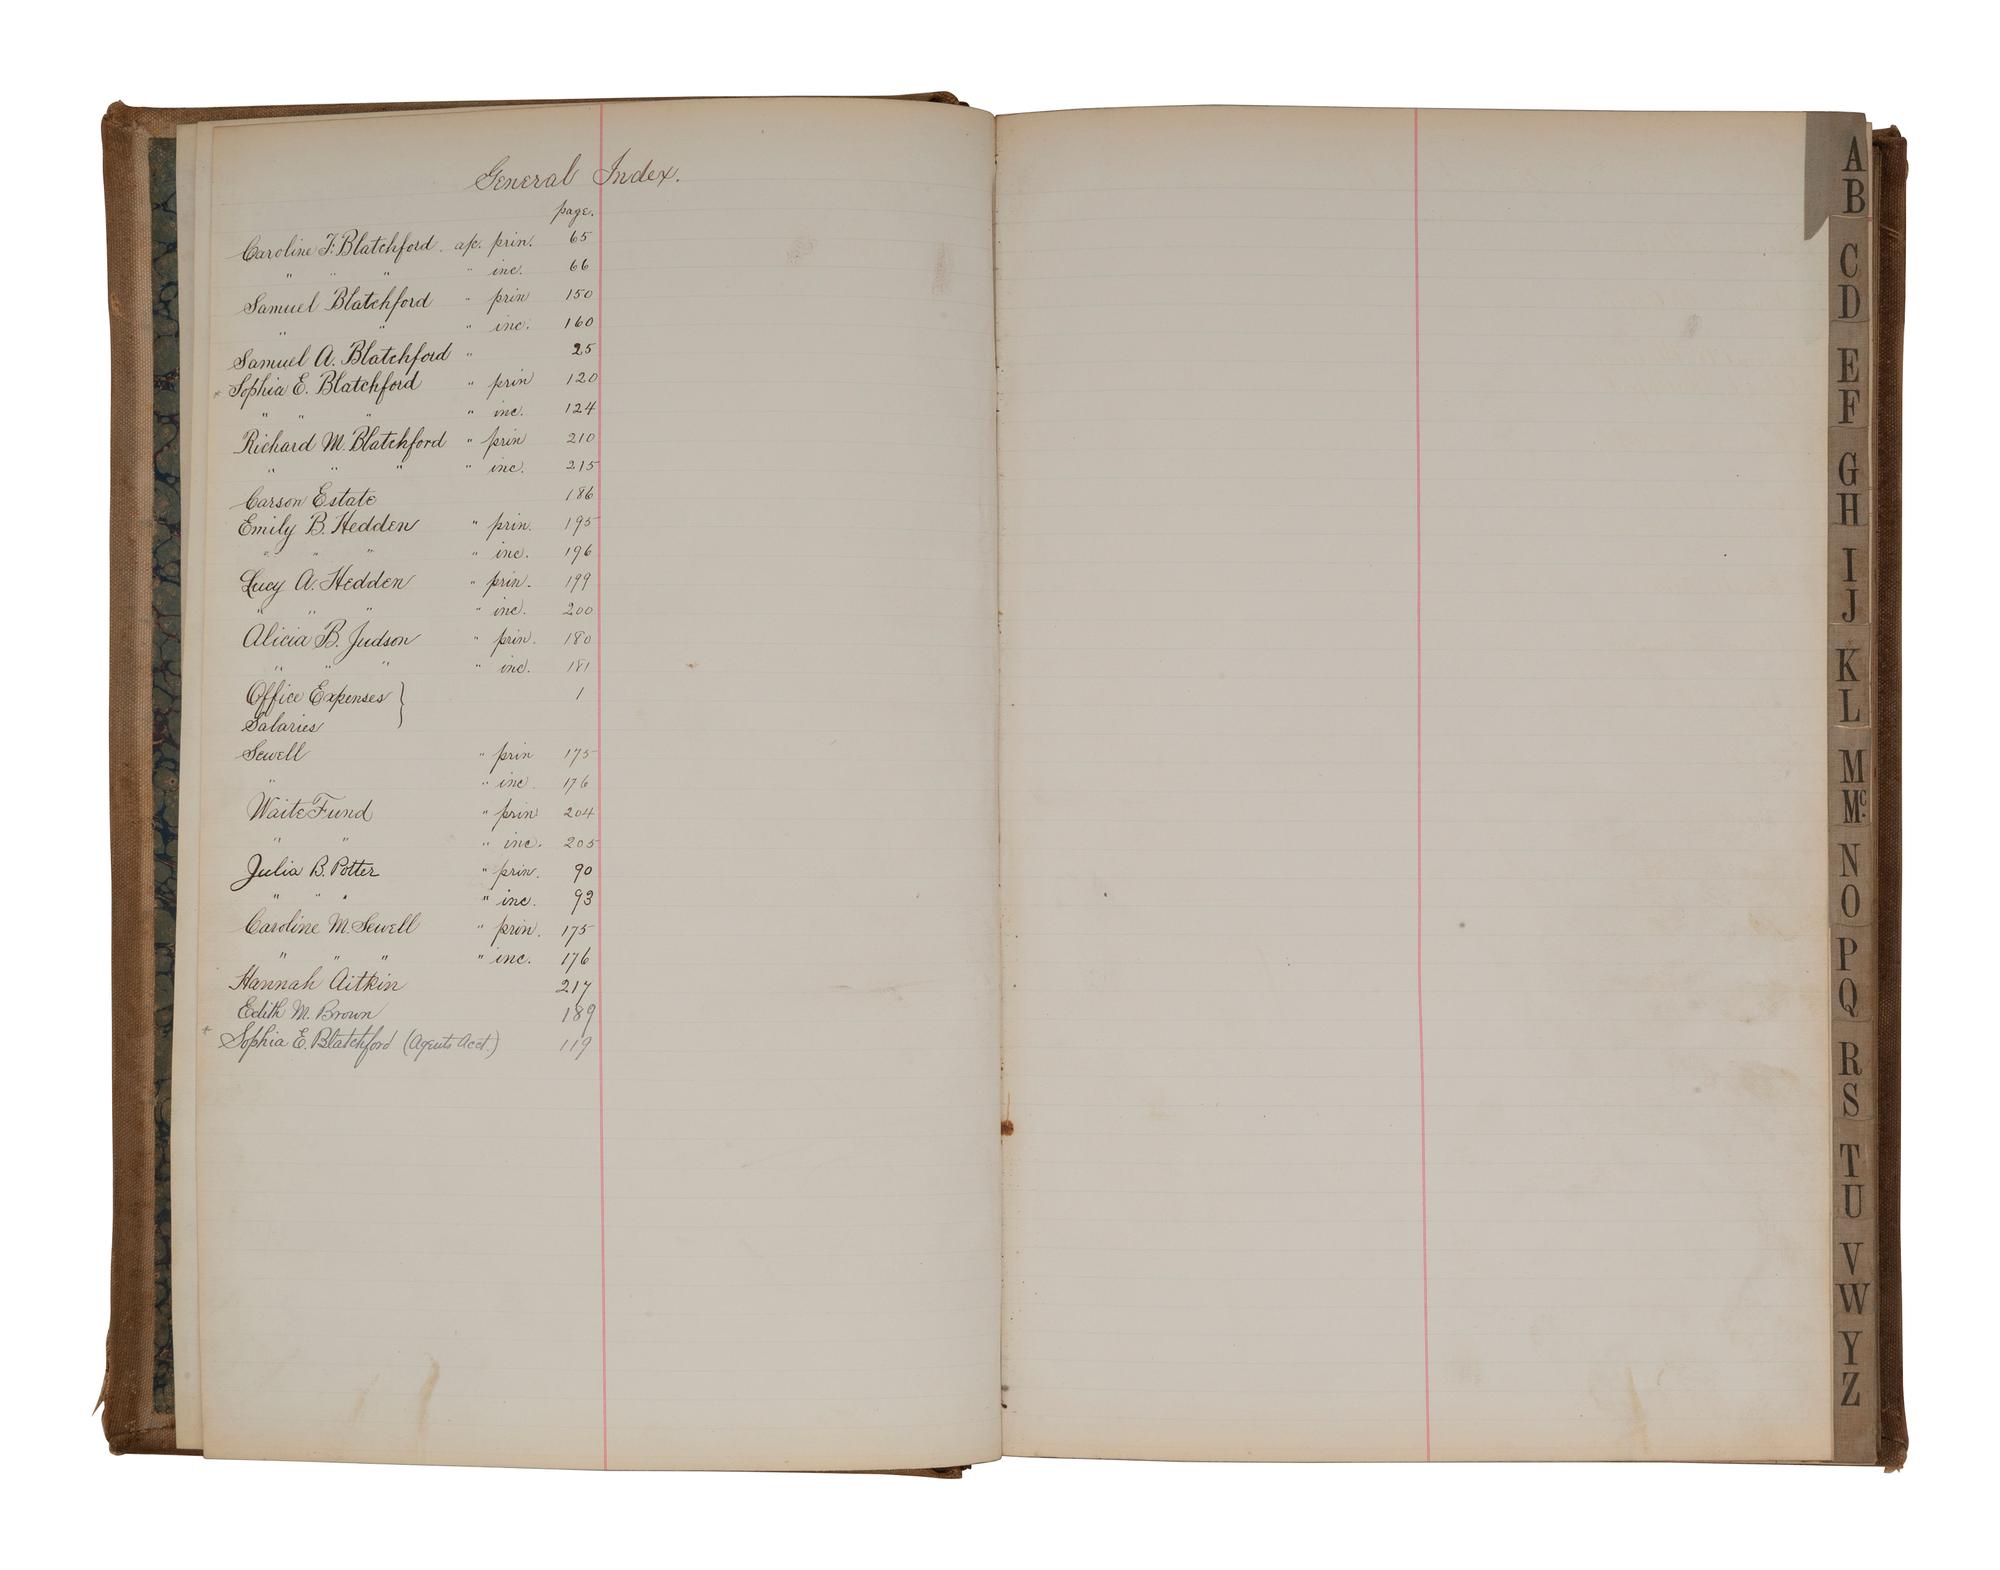 General Index.
page.
Caroline F. Blatchford. a/c. prin. 65
" " " " inc. 66
Samuel Blatchford " prin 150
" " " inc. 160
Samuel A. Blatchford " 25
* Sophia E. Blatchford " prin 120
" " " " inc. 124
Richard M. Blatchford " prin 210
" " " " inc. 215
Carson Estate 186
Emily B. Hedden " prin. 195
" " " " inc. 196
Lucy A. Hedden " prin. 199
" " " " inc. 200
Alicia B. Judson " prin. 180
" " " " inc. 181
Office Expenses } 1
Salaries
Sewell " prin 175
" " inc. 176
Waite Fund " prin 204
" " " inc. 205
Julia B. Potter " prin. 90
" " " " inc. 93
Caroline M. Sewell " prin. 175
" " " " inc. 176
Hannah Aitkin 217
Edith M. Brown 189
* Sophia E. Blatchford (Agents Acct.) 119
A
B
C
D
E
F
G
H
I
J
K
L
M
Mc.
N
O
P
Q
R
S
T
U
V
W
Y
Z